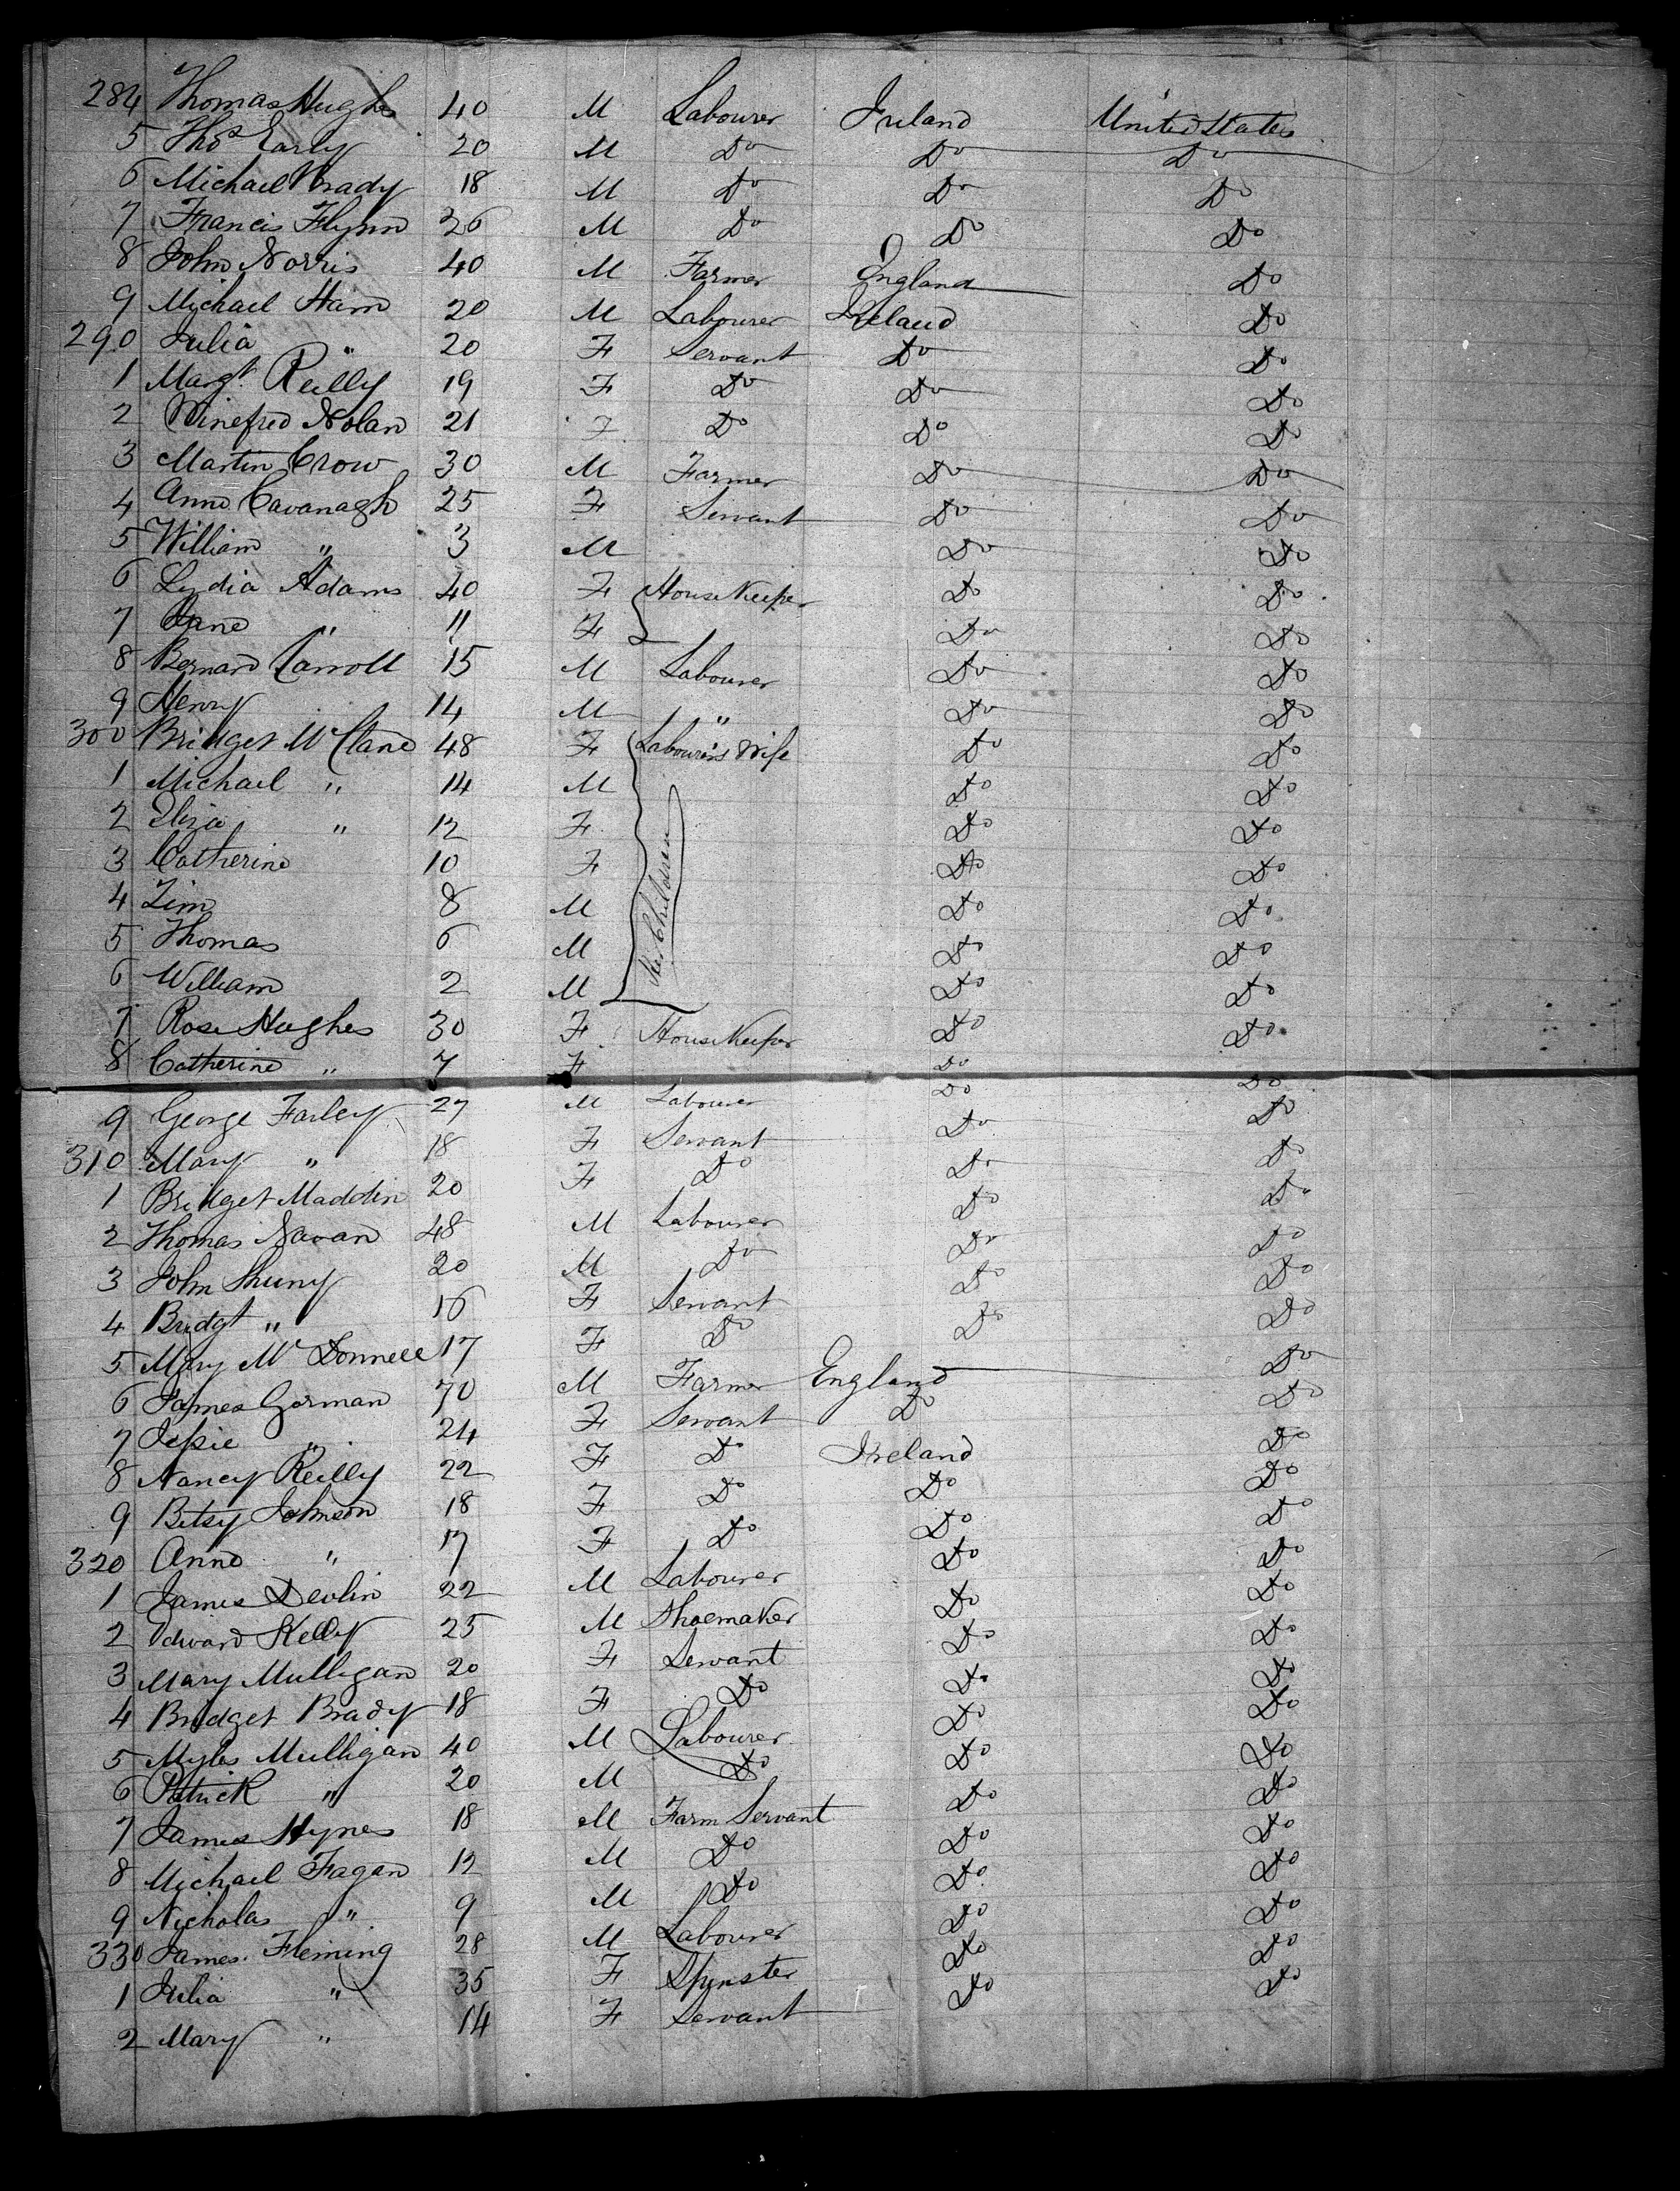 284 Thomas Hughes 40 M Labourer Ireland United States
5 Thos Early 20 M Do Do Do
6 Michael Brady 18 M Do Do Do
7 Francis Flynn 26 M Do Do Do
8 John Norris 40 M Farmer England Do
9 Michael Ham 20 M Labourer Ireland Do
290 Julia " 20 F Servant Do Do
1 Margt. Reilly 19 F Do Do Do
2 Winefred Nolan 21 F Do Do Do
3 Martin Crow 30 M Farmer Do Do
4 Anne Cavanagh 25 F Servant Do Do
5 William " 3 M Do Do
6 Lydia Adams 40 F House Keeper Do Do
7 Jane " 11 F Do Do
8 Bernard Carroll 15 M Labourer Do Do
9 Henry 14 M " Do Do
300 Bridget McClane 48 F Labourer's Wife Do Do
1 Michael " 14 M Her Children Do Do
2 Eliza " 12 F Do Do
3 Catherine 10 F Do Do
4 Tim 8 M Do Do
5 Thomas 6 M Do Do
6 William 2 M Do Do
7 Rose Hughes 30 F House Keeper Do Do
8 Catherine " 7 F Do Do
9 George Farley 27 M Labourer Do Do
310 Mary " 18 F Servant Do Do
1 Bridget Maddin 20 F Do Do Do
2 Thomas Navan 48 M Labourer Do Do
3 John Shuny 20 M Do Do Do
4 Bridgt " 16 F Servant Do Do
5 Mary McDonnell 17 F Do Do Do
6 James Gorman 70 M Farmer England Do
7 Jessie " 24 F Servant Do Do
8 Nancy Reilly 22 F Do Ireland Do
9 Betsy Johnson 18 F Do Do Do
320 Anne " 17 F Do Do Do
1 James Devlin 22 M Labourer Do Do
2 Edward Kelly 25 M Shoemaker Do Do
3 Mary Mulligan 20 F Servant Do Do
4 Bridget Brady 18 F Do Do Do
5 Myles Mulligan 40 M Labourer Do Do
6 Patrick " 20 M Do Do Do
7 James Hynes 18 M Farm Servant Do Do
8 Michael Fagan 12 M Do Do Do
9 Nicholas " 9 M Do Do Do
330 James Fleming 28 M Labourer Do Do
1 Julia " 35 F Spinster Do Do
2 Mary " 14 F Servant Do Do